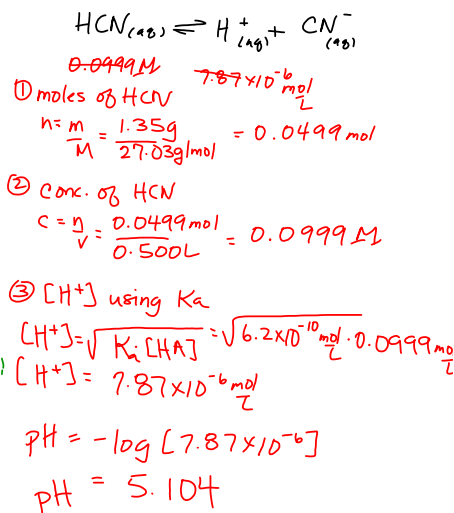 HCN(aq) ⇌ H⁺(aq) + CN⁻(aq)
0.0999M 7.87×10⁻⁶ mol/L
① moles of HCN
n = m/M = 1.35g / 27.03g/mol = 0.0499 mol
② conc. of HCN
C = n/v = 0.0499mol / 0.500L = 0.0999M
③ [H⁺] using Ka
[H⁺] = √Ka[HA] = √6.2×10⁻¹⁰ mol/L · 0.0999 mo/L
[H⁺] = 7.87×10⁻⁶ mol/L
pH = -log [7.87×10⁻⁶]
pH = 5.104